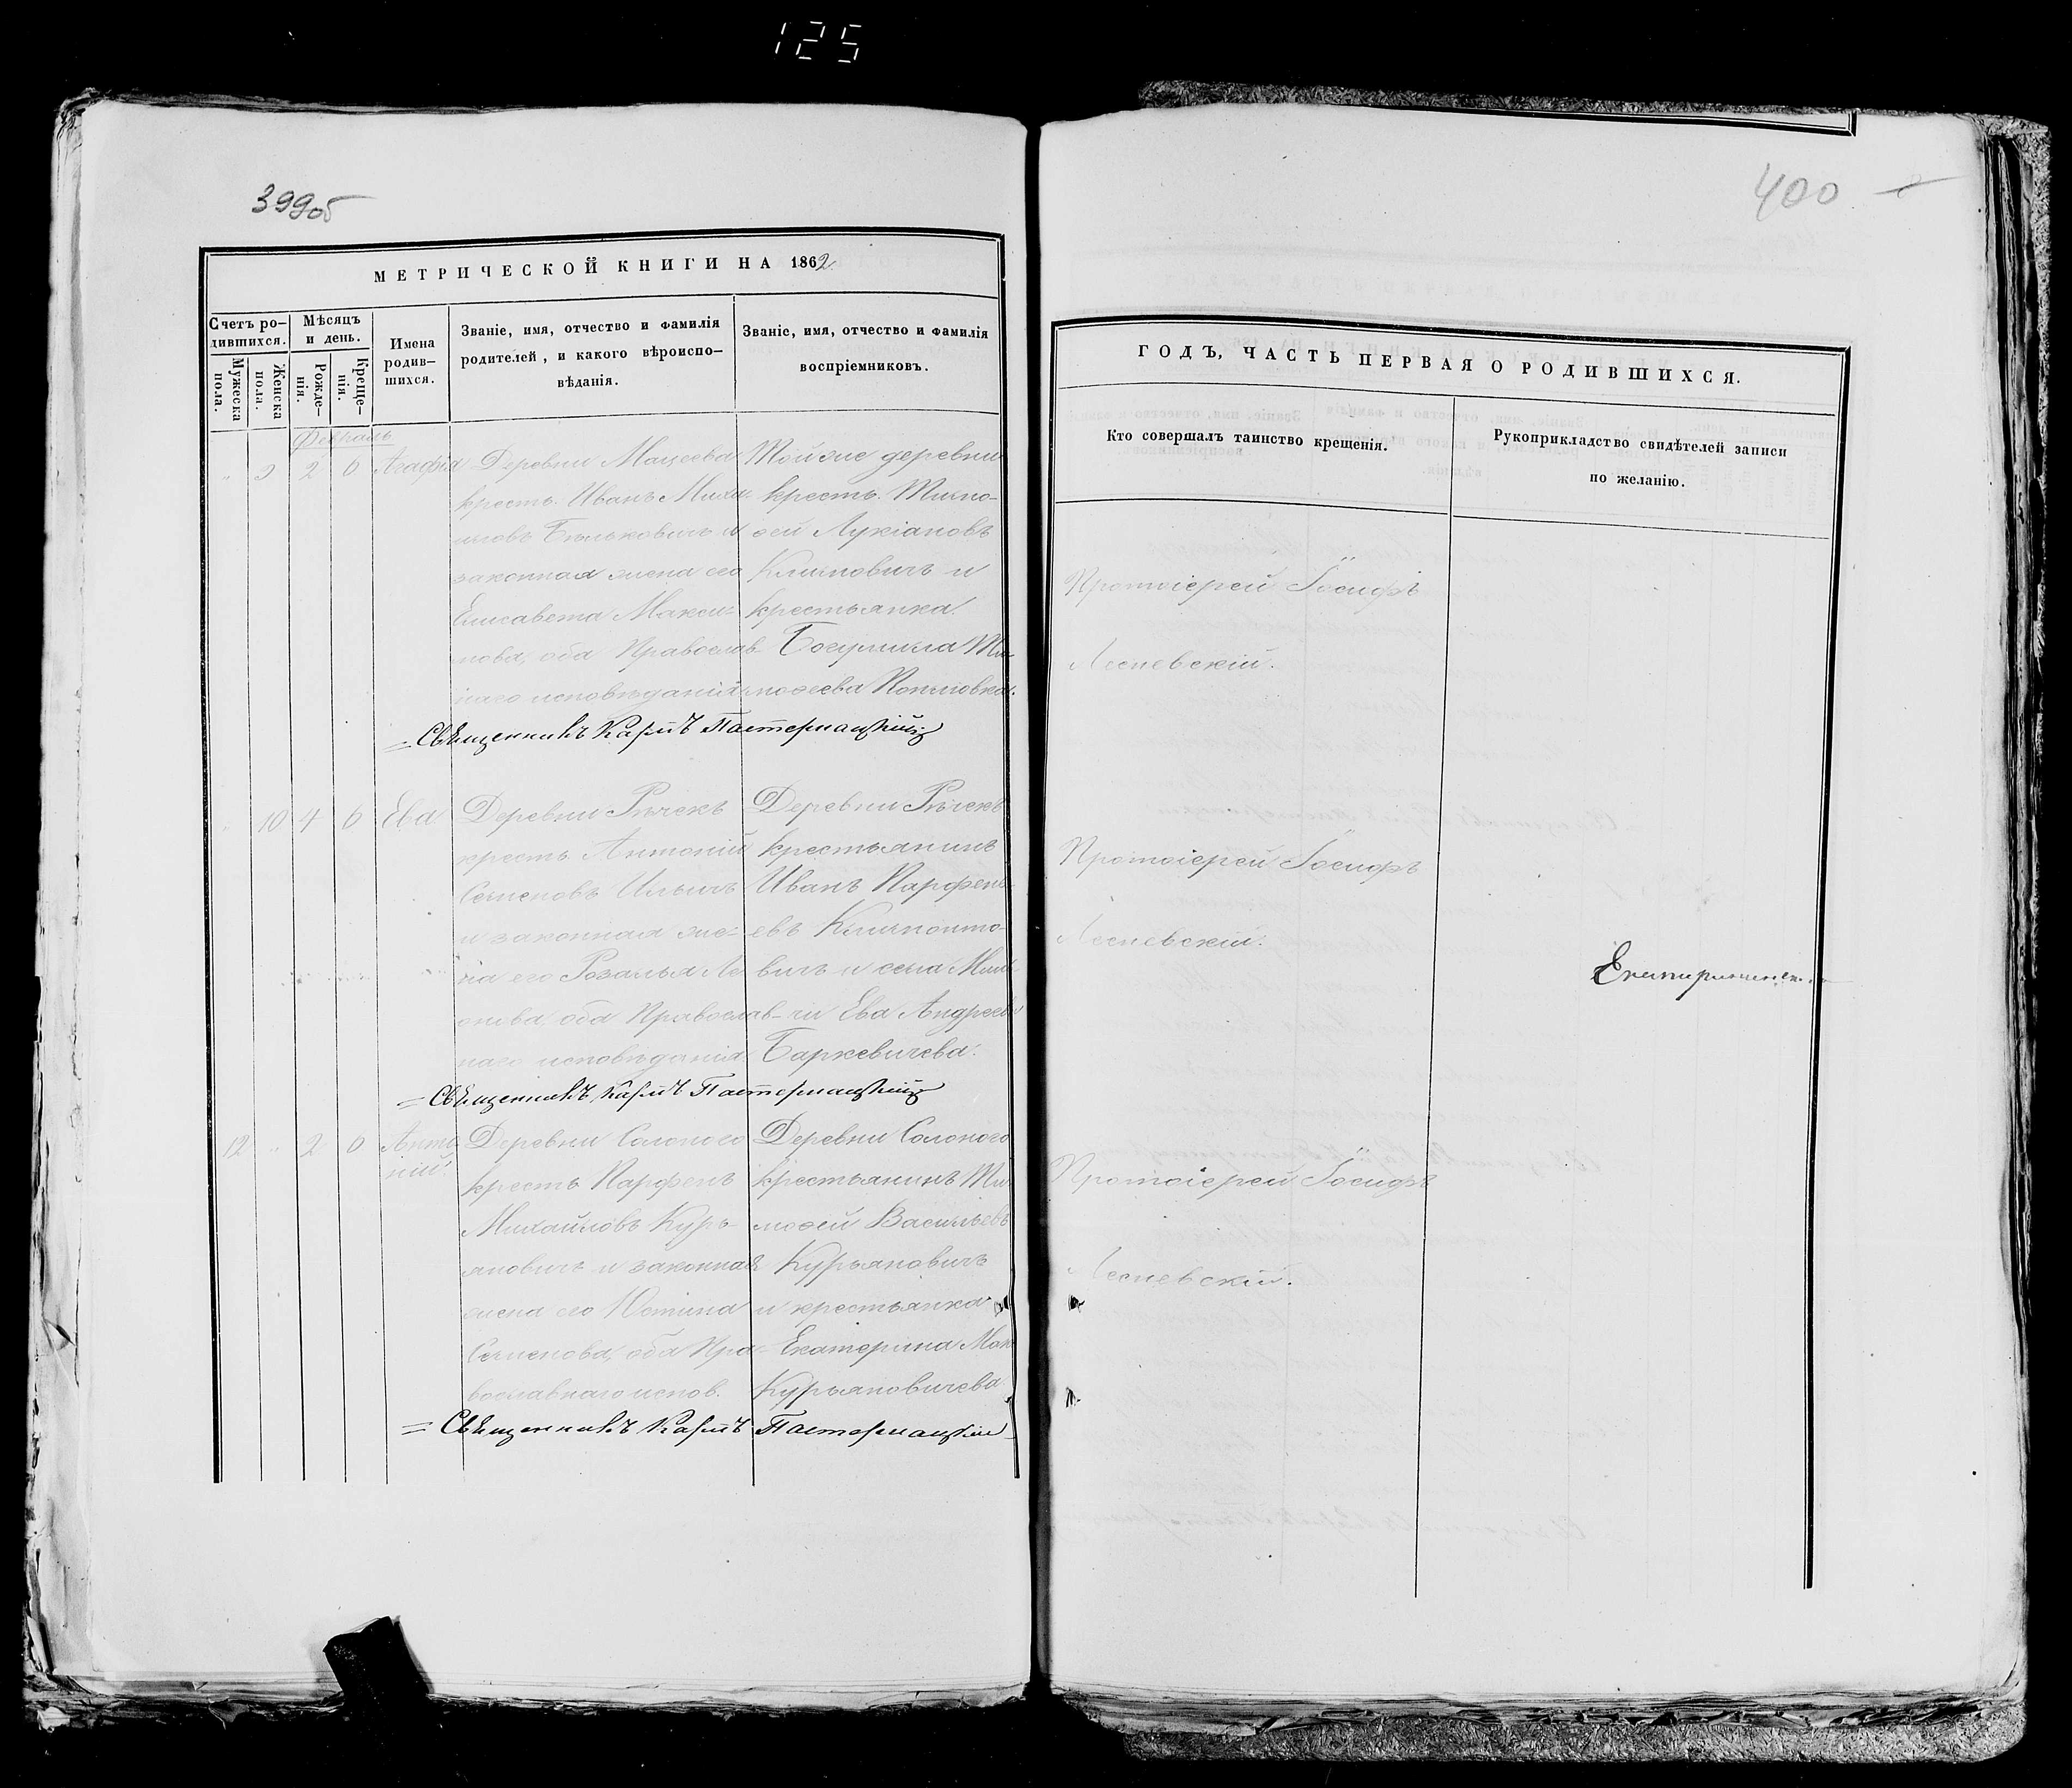 125
399об
МЕТРИЧЕСКОЙ КНИГИ НА 1862
Счетъ ро-
дившихся.
Мужеска
пола.
Женска
пола.
Мѣсяцъ
и день.
Рожде-
нія.
Креще-
нія.
Имена
родив-
шихся.
Званіе, имя, отчество и фамилія
родителей, и какого вѣроиспо-
вѣданія.
Званіе, имя, отчество и фамилія
воспріемниковъ.
Февраль
" 9 2 6 Агафія
Деревни Мацеева
кресть. Иванъ Михаи-
ловъ Бѣльковичъ и
законная жена его
Елисавета Макси-
мова, оба Православ-
наго исповѣданія
Тойже деревни
кресть. Тимо-
ѳей Лукіановъ
Климовичъ и
крестьянка
Богумила Ти-
моѳеева
=Священникъ Карпъ Пастернацкій
" 10 4 6 Ева
Деревни Рѣчекъ
кресть. Антоній
Семеновъ Ильичъ
и законная же-
на его Розалья Ле
онова, оба Православ-
наго исповѣданія
Деревни Рѣчекъ
крестьянинъ
Иванъ Парфень-
евъ
вичъ и села
Ева Андреева
Баркевичева.
=Священникъ Карпъ Пастернацкій
12 " 2 6 Анто
ній
Деревни Солоного
кресть Парфенъ
Михайловъ Курь-
яновичъ и законная
жена его Юстина
Семенова, оба Пра-
вославнаго испов.
Деревни Солоного
крестьянинъ Ти
моѳей Васильевъ
Курьяновичъ
и крестьянка
Екатерина Мак
Курьяновичева
=Священникъ Карпъ Пастернацкій
400
ГОДЪ, ЧАСТЬ ПЕРВАЯ О РОДИВШИХСЯ.
Кто совершалъ таинство крещенія.
Рукоприкладство свидѣтелей записи
по желанію.
Протоіерей Іосифъ
Лесневскій.
Протоіерей Іосифъ
Лесневскій.
Протоіерей Іосифъ
Лесневскій.